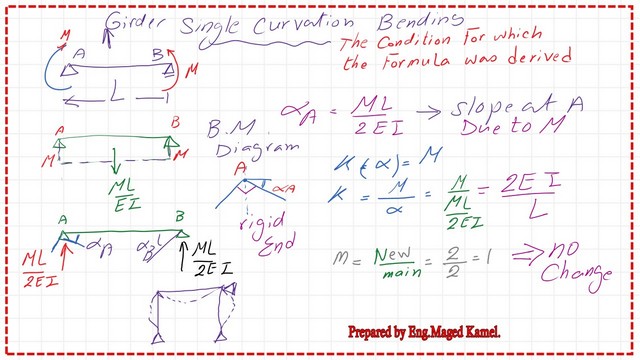 Girder Single Curvation Bending
The Condition For which
the Formula was derived
M
A
B
M
L
A
B
M
M
ML
EI
B.M.
Diagram
αA = ML / 2EI → slope at A
Due to M
A
αA
rigid
End
K(α) = M
K = M / α = M / ML/2EI = 2EI / L
A
B
αA
αB
ML
2EI
ML
2EI
m = New / main = 2 / 2 = 1 ⇒ no
Change
Prepared by Eng.Maged Kamel.